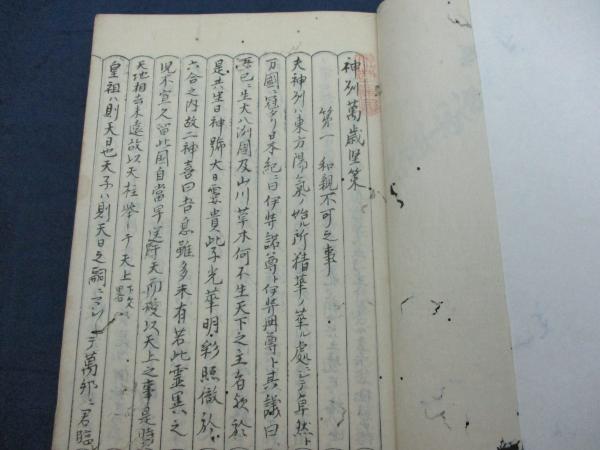 神州萬歳堅策
第一 和親不可之事
夫神州ハ東方陽氣ノ始ル所精華ノ華ル處ニシテ卓然ト
万國ニ冠タリ日本紀ニ曰伊弉諾尊ト伊弉冊尊ト共議曰
吾已ニ生大八洲國及山川草木何不生天下之主者歟於
是共生日神號大日孁貴此子光華明彩照徹於
六合之内故二神喜曰吾息雖多未有若此靈異之
児不宜久留此國自當早送于天而授以天上之事是時
天地相去未遠故以天柱擧於天上下文略
皇祖ハ則天日也天子ハ則天日之嗣ニシテ萬邦ニ君臨